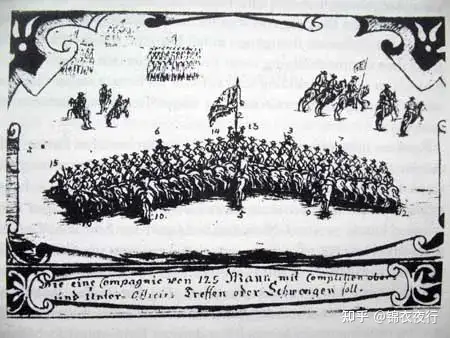 6
14
13
3
7
2
15
16
10.
5
12
Wie eine Compagnie von 125 Mann, mit Completten ober
und Unter-Officirs Treffen oder Schwengen soll.
知乎 @锦衣夜行